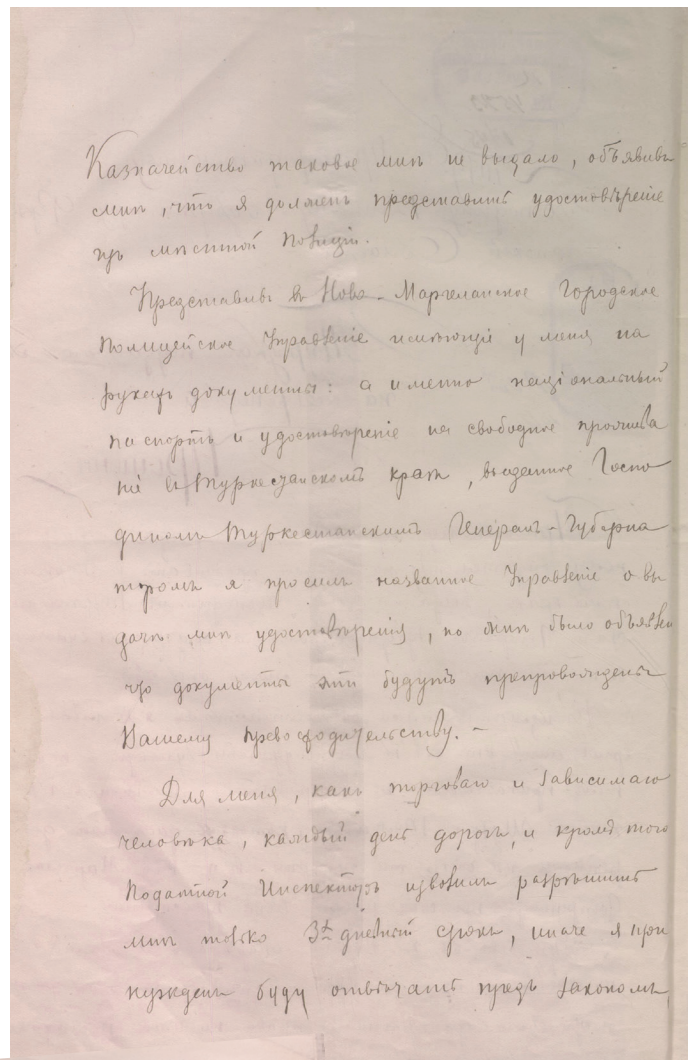 Казначейство таковое мнѣ не выдало, объявивъ
мнѣ, что я долженъ представить удостовѣреніе
изъ мѣстной Полиціи.
Представивъ въ Ново-Маргеланское Городское
Полицейское Управленіе имѣющіе у меня на
рукахъ документы: а именно національный
паспортъ и удостовѣреніе на свободное прожива
ніе въ Туркестанскомъ краѣ, выданное Госпо
диномъ Туркестанскимъ Генералъ-Губерна
торомъ я просилъ названное Управленіе о вы
дачѣ мнѣ удостовѣренія, но мнѣ было объявлен
что документы эти будутъ препровождены
Вашему Превосходительству. —
Для меня, какъ торговаго и зависимаго
человѣка, каждый день дорогъ, и кромѣ того
Податной Инспекторъ изволилъ разрѣшить
мнѣ только 3х дневный срокъ, иначе я при
нужденъ буду отвѣчать предъ закономъ,